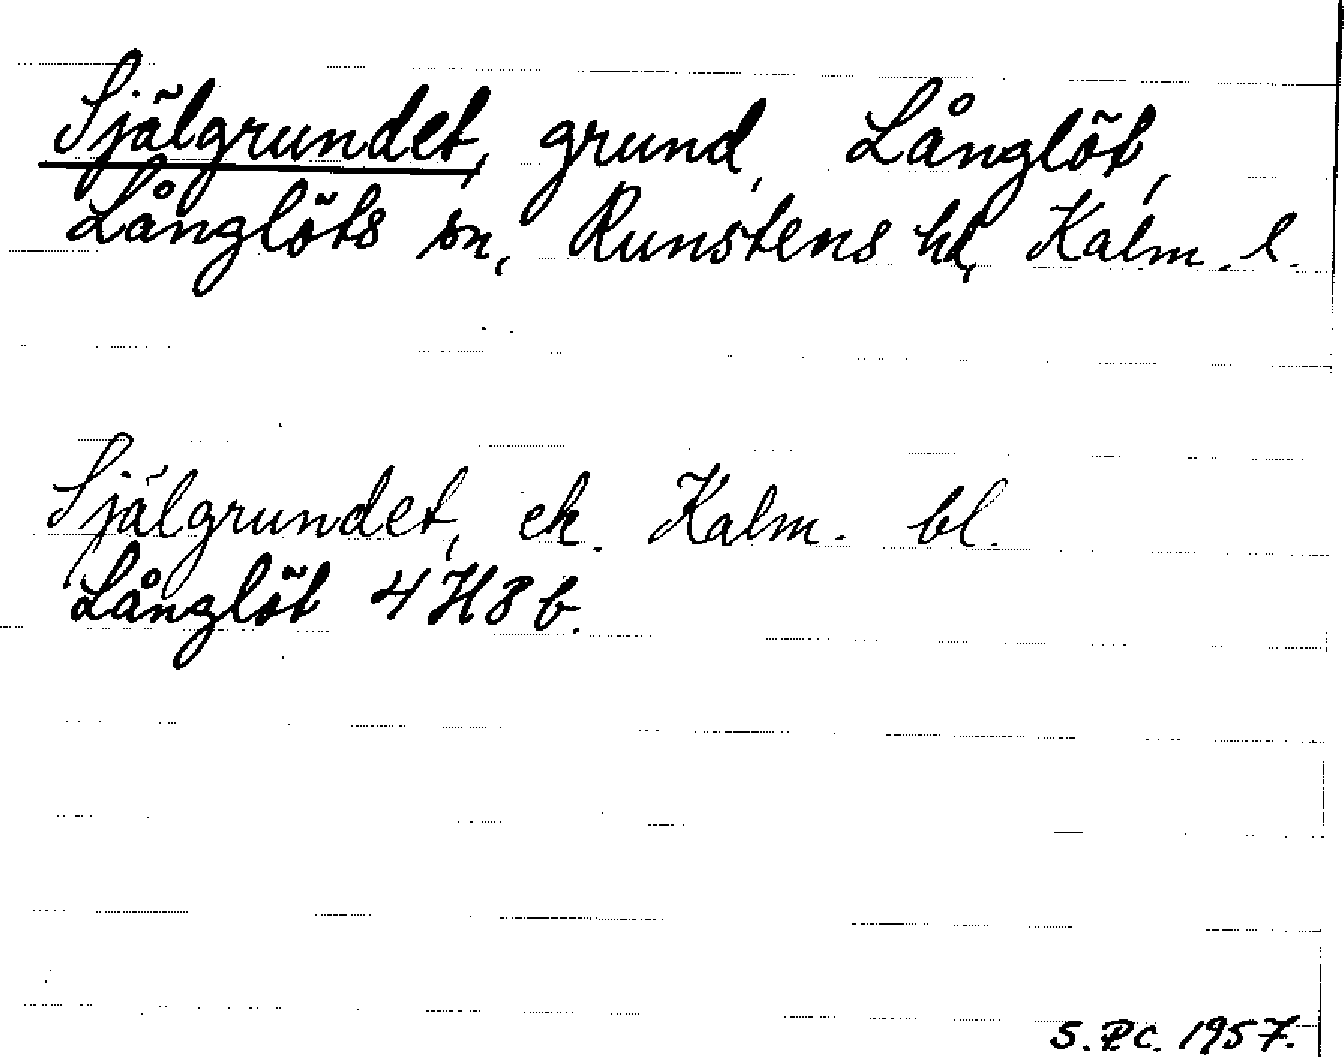 Själgrundet, grund, Långlöt,
Långlöts sn, Runstens hd, Kalm. l.
Själgrundet, ek. Kalm. bl.
Långlöt 4 H 8 b.
S.P.C. 1957.